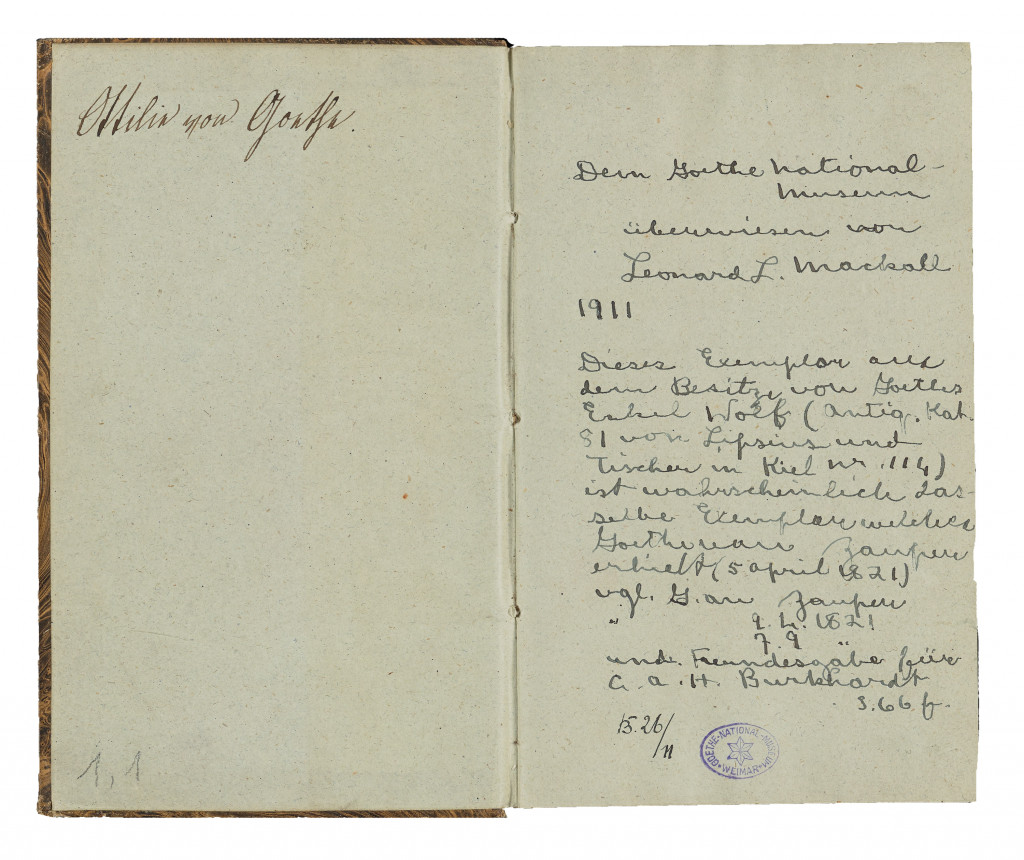 Ottilie von Goethe.
Dem Goethe National-
Museum
überwiesen von
Leonard L. Mackall
1911
Dieses Exemplar aus
dem Besitze von Goethes
Enkel Wolf (Antiq. Kat.
81 von Lipsius und
Tischer in Kiel Nr. 114)
ist wahrscheinlich das-
selbe Exemplar welches
Goethe von Zauper
erhielt (5 April 1821)
vgl. G. an Zauper
" 9. 4. 1821
7. 9
und. Freundesgabe für
C. A. H. Burkhardt
S. 66 f.
15. 26/11
GOETHE-NATIONAL-MUSEUM
WEIMAR
1, 1